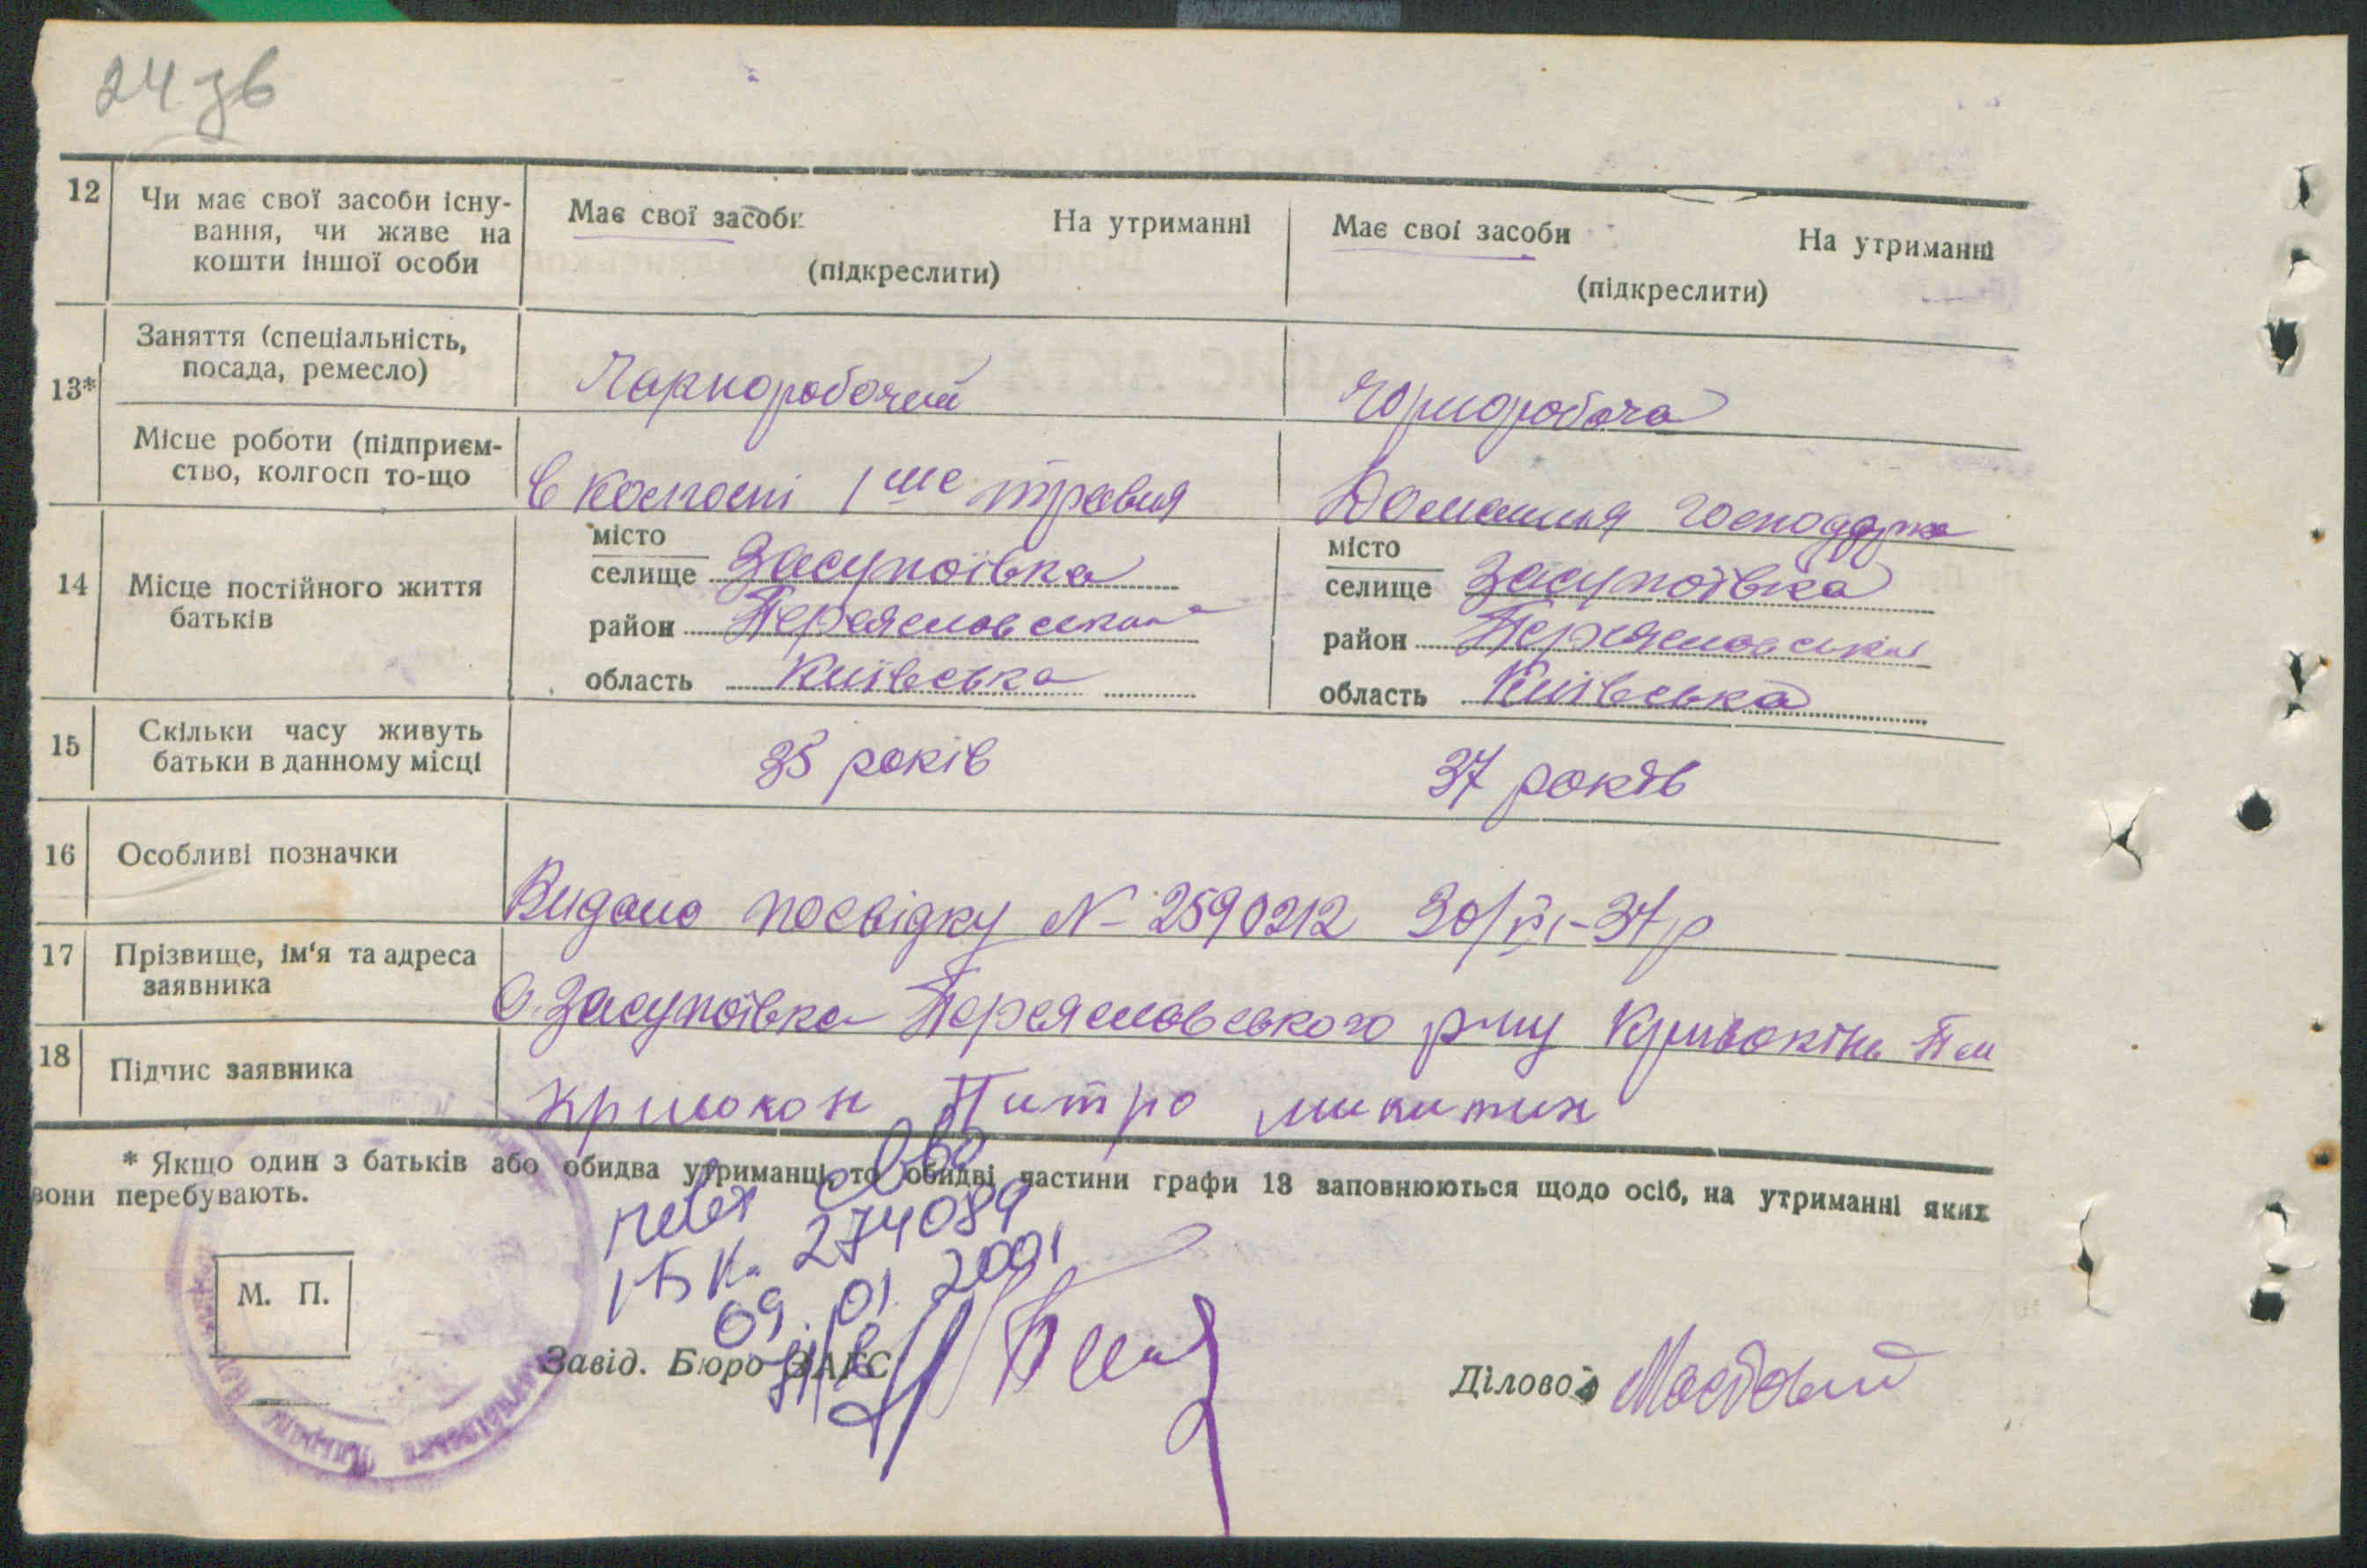 24 зв
12 Чи має свої засоби існу-
вання, чи живе на
кошти іншої особи
Має свої засоби На утриманні
(підкреслити)
Має свої засоби На утриманні
(підкреслити)
13* Заняття (спеціальність,
посада, ремесло)
Чарноробочий
Чорноробоча
Місце роботи (підприєм-
ство, колгосп то-що
В колгоспі 1ше травня
Домашня господарка
14 Місце постійного життя
батьків
місто
селище Засупоївка
район Переяславський
область Київська
місто
селище Засупоївка
район Переяславський
область Київська
15 Скільки часу живуть
батьки в данному місці
35 років
37 років
16 Особливі позначки
Видано посвідку № 2590212 30/XI-37р
17 Прізвище, ім'я та адреса
заявника
С. Засупоївка Переяславського р-ну Кривокінь
18 Підпис заявника
Кривокон Питро микитич
* Якщо один з батьків або обидва утриманці, то обидві частини графи 13 заповнюються щодо осіб, на утриманні яких
вони перебувають.
274089
09. 01. 2001
М. П.
Завід. Бюро ЗАГС
Діловод